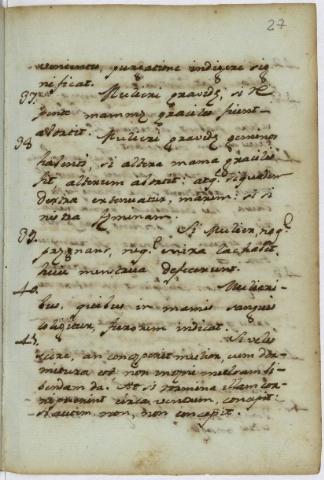 27
veniente, purgatione indigere sig
nificat.
37. Mulieri gravidę, si re
pente mammę graciles fient
abortit.
38 Mulieri gravidę geminos
habenti, si altera mama gracilis
fit alterum abortit: atq. siquidem
dextra extenuatur, marem: si si
nistra fęminam.
39. Si Mulier, neq.
pręgnans, neq. enixa lac habet
huic menstrua defecerunt.
40. Mulieri-
bus, quibus in mamis sanguis
colligitur, furorem indicat.
41. Si velis
scire, an conceperit mulier, cum dor-
mitura est aquam mulsam bi-
bendam da. Et si tormina illam cor-
ripuerint circa ventrem, concepit:
si autem non, non concepit.